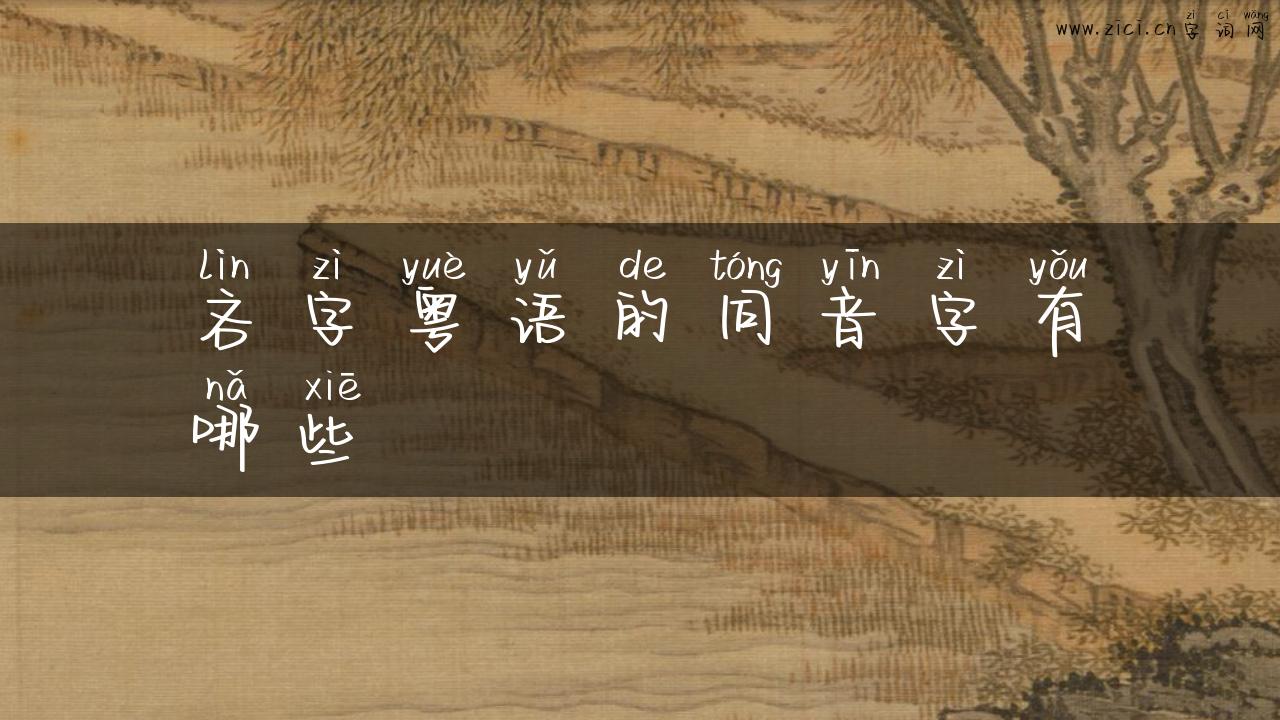 zì cí wǎng
www.zici.cn 字词网
lìn zì yuè yǔ de tóng yīn zì yǒu
吝字粤语的同音字有
nǎ xiē
哪些